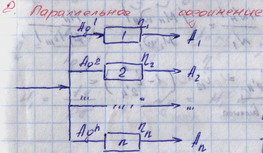 2) Параллельное соединение
A₀¹ 1 η₁ A₁
A₀² 2 η₂ A₂
... ... ...
A₀ⁿ n ηₙ Aₙ